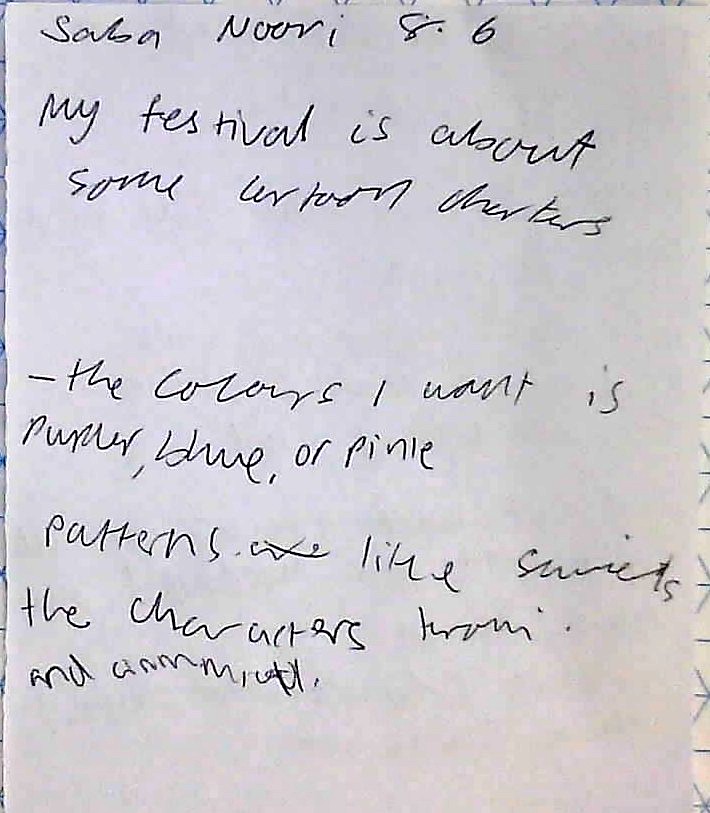 Saba Noori 8.6
My festival is about
some certoon charters
- the colours I want is
purler, blue, or pink
patterns like
the characters from.
and